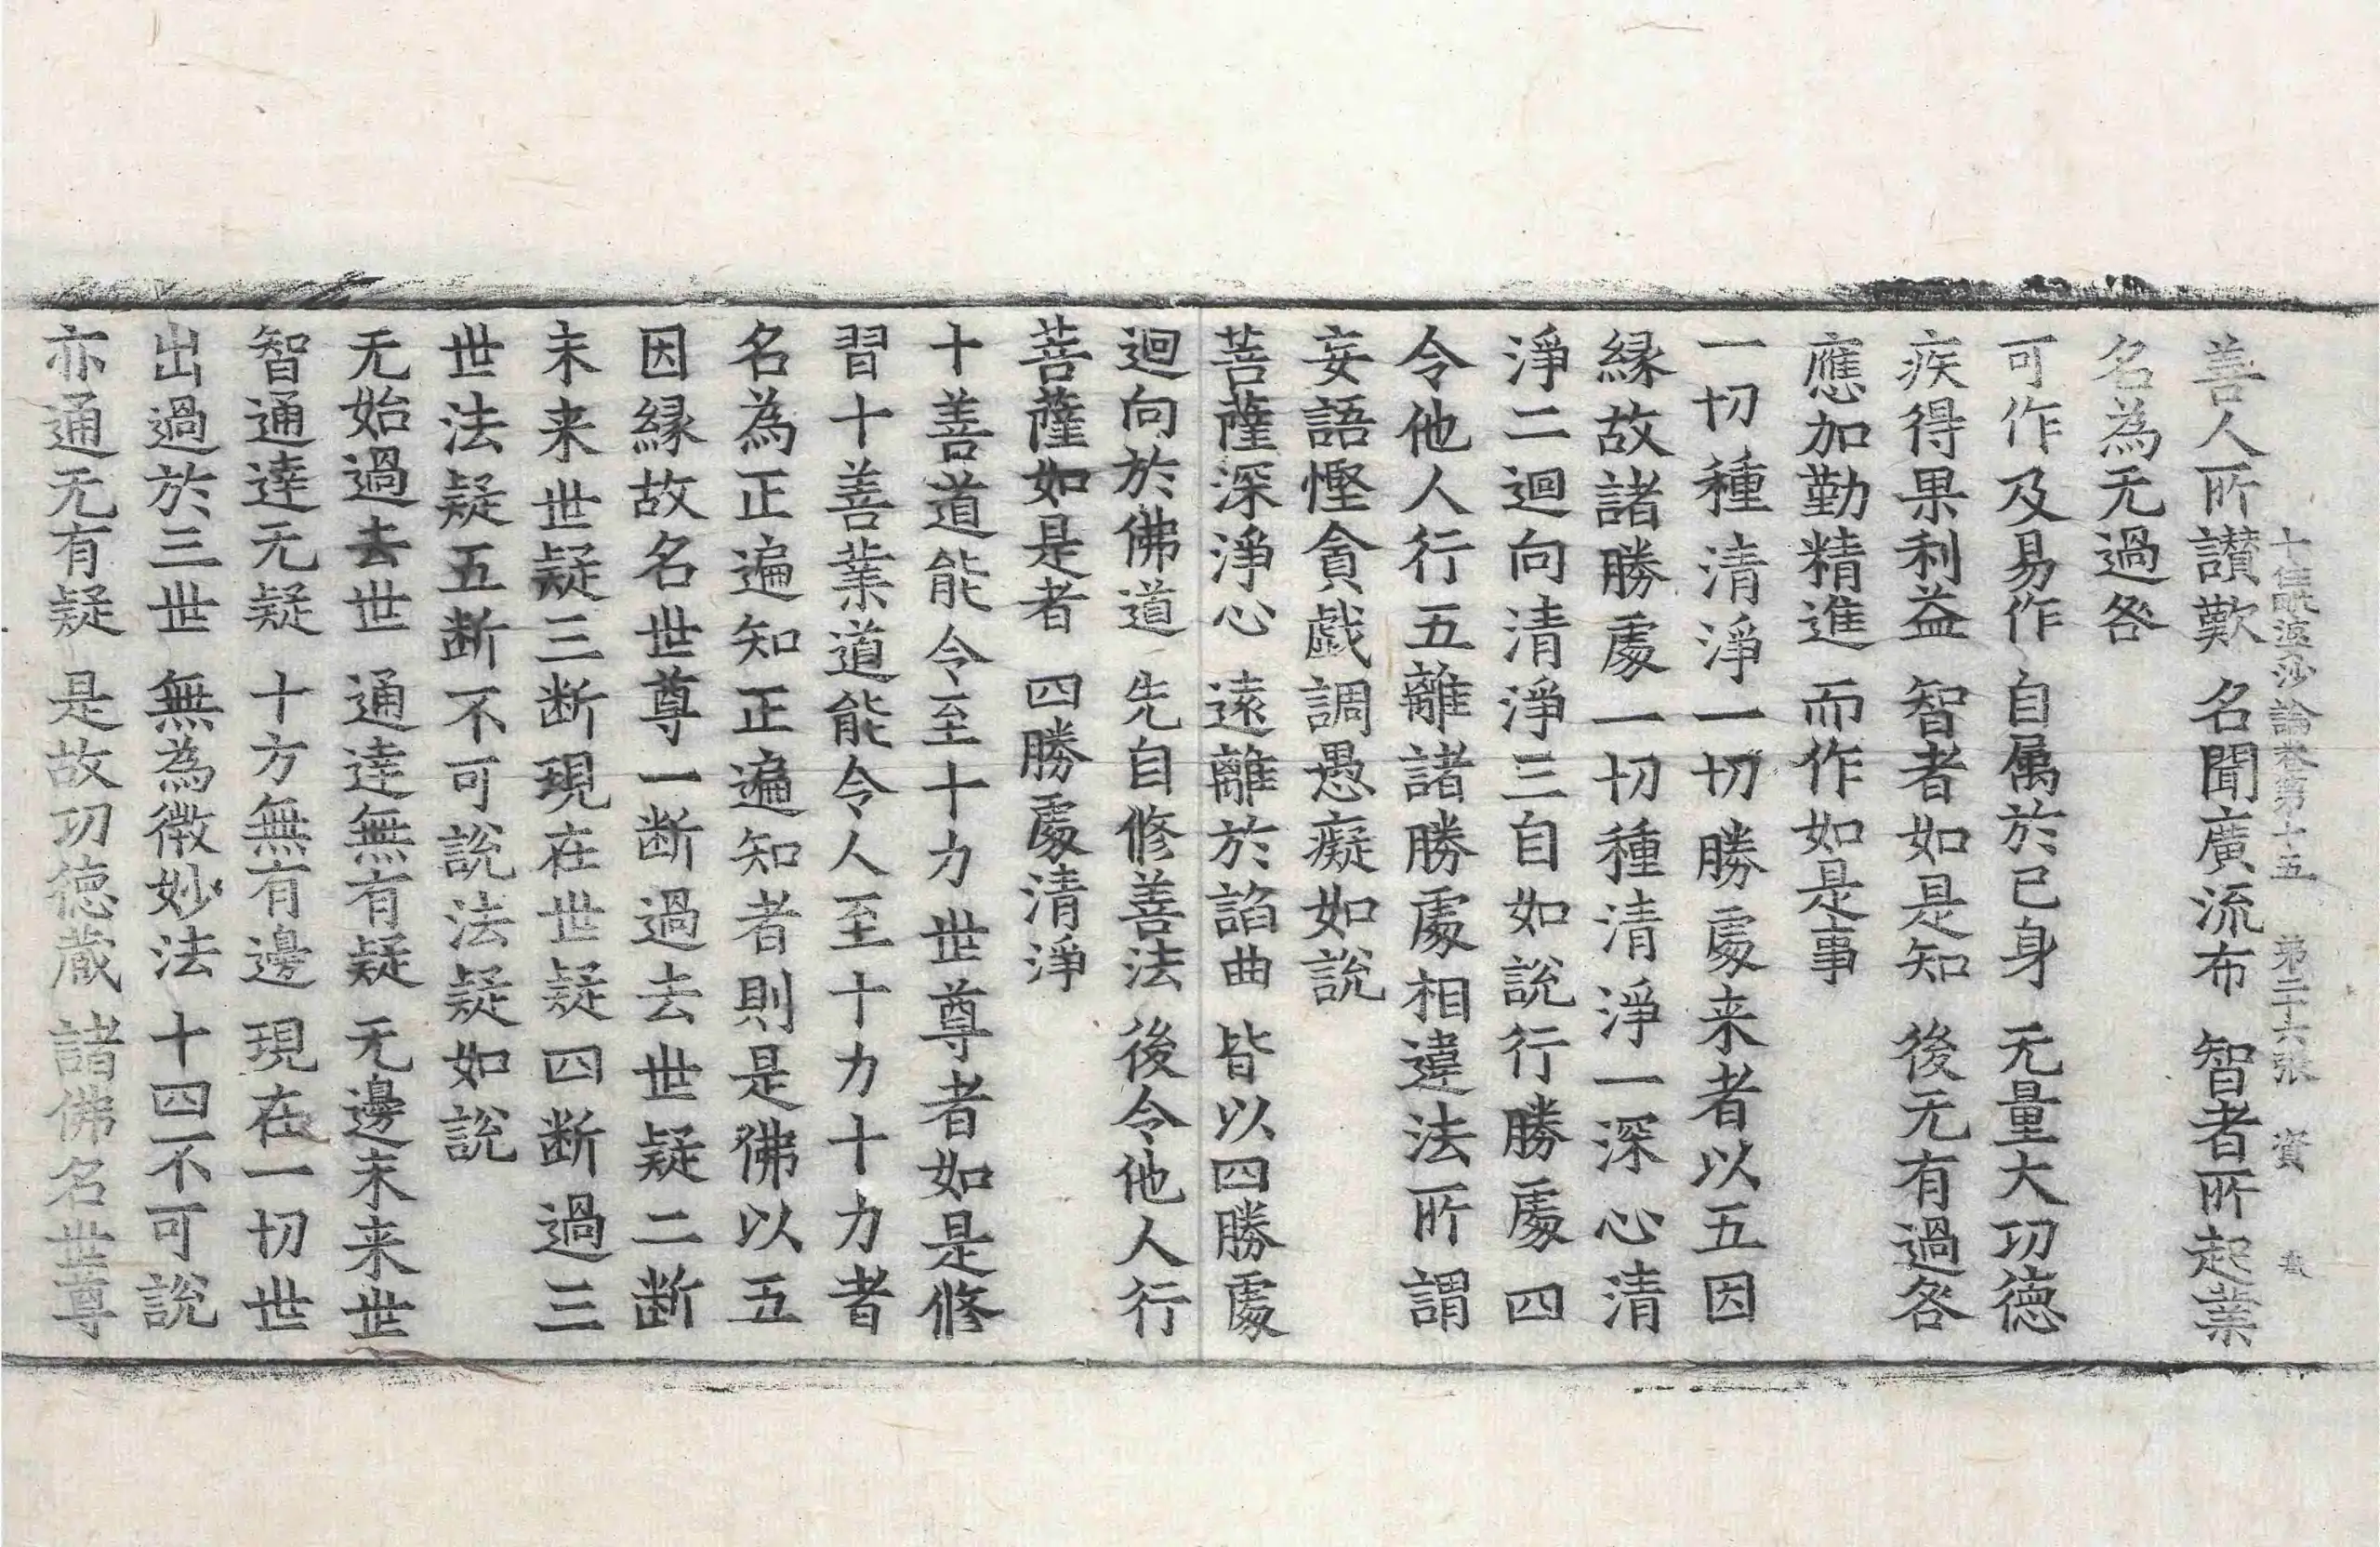 十住毗婆沙論卷第十五 第二十六張 資
善人所讃歎 名聞廣流布 智者所起業
名為无過咎
可作及易作 自属於已身 无量大功徳
疾得果利益 智者如是知 後无有過咎
應加勤精進 而作如是事
一切種清淨一切勝處来者以五因
縁故諸勝處一切種清淨一深心清
淨二迴向清淨三自如說行勝處四
令他人行五離諸勝處相違法所謂
妄語慳貪戯調愚癡如說
菩薩深淨心 遠離於諂曲 皆以四勝處
迴向於佛道 先自修善法 後令他人行
菩薩如是者 四勝處清淨
十善道能令至十力世尊者如是修
習十善業道能令人至十力十力者
名為正遍知正遍知者則是佛以五
因縁故名世尊一断過去世疑二断
未来世疑三断現在世疑四断過三
世法疑五断不可說法疑如說
无始過去世 通達無有疑 无邊未来世
智通達无疑 十方無有邊 現在一切世
出過於三世 無為微妙法 十四不可說
亦通无有疑 是故功徳蔵 諸佛名世尊